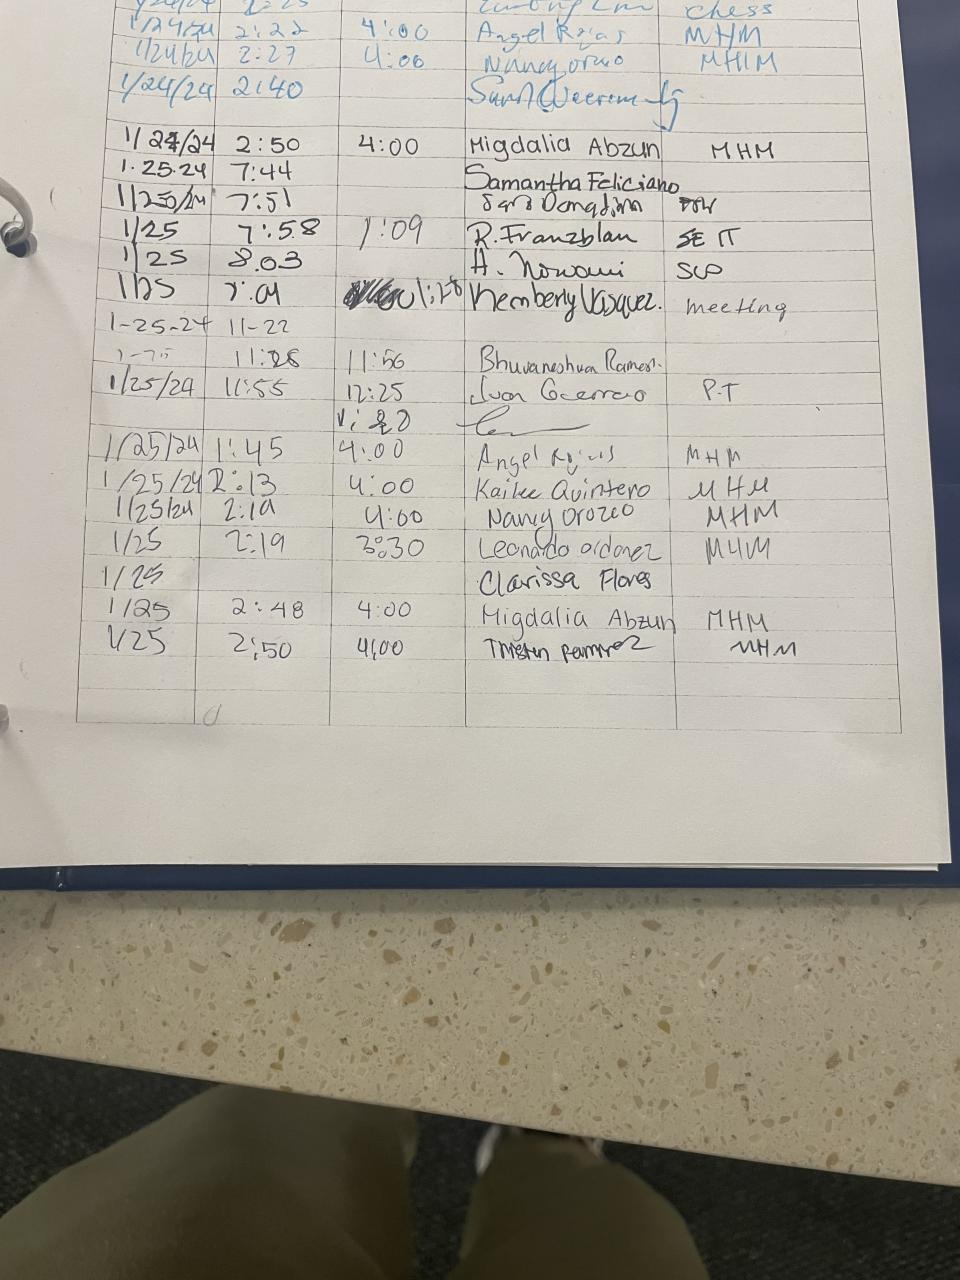 chess
1/24/24 2:22 4:00 Angel Rojas MHM
1/24/24 2:27 4:00 Nancy Orozco MHM
1/24/24 2:40
1/24/24 2:50 4:00 Migdalia Abzun MHM
1.25.24 7:44 Samantha Feliciano
7:51
1/25 7:58 1:09 R. Franzblau SEIT
1/25 8:03 A.
1/25 Kemberly Vasquez. meeting
1-25-24 11-22
11:26 11:56 Bhuvaneshwan
1/25/24 11:55 12:25 Juan Guerrero P.T
1/25/24 1:45 4:00 Angel Rojas MHM
1/25/24 2:13 4:00 Kailee Quintero MHM
1/25/24 2:19 4:00 Nancy Orozco MHM
1/25 2:19 3:30 Leonardo Ordonez MHM
1/25 Clarissa Flores
1/25 2:48 4:00 Migdalia Abzun MHM
1/25 2:50 4:00 Tristen Ramirez MHM